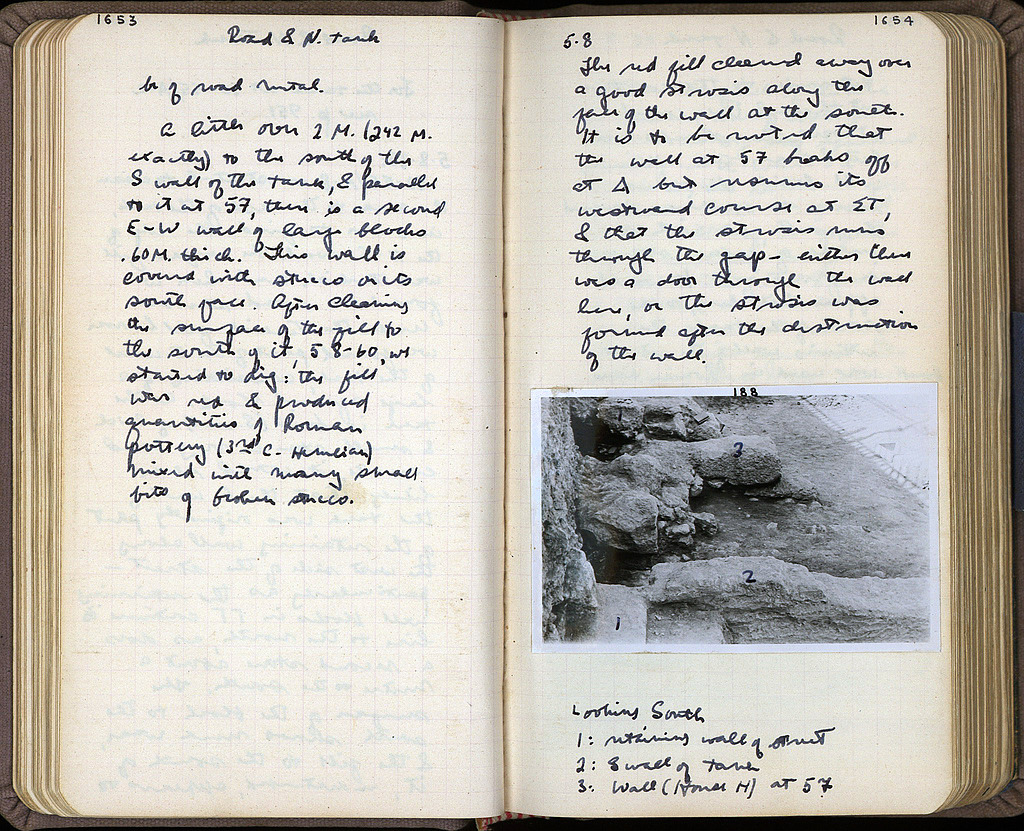 1653
Road & N. tank
be of road metal.
A little over 2 M. (2.42 M.
exactly) to the south of the
S wall of the tank, & parallel
to it at 57, there is a second
E-W wall of large blocks
.60M. thick. This wall is
covered with stucco on its
south face. After clearing
the surface of the fill to
the south of it, 58-60, we
started to dig: the fill
was red & produced
quantities of Roman
pottery (3rd C. - Herulian)
mixed with many small
bits of broken stucco.
1654
5.8
The red fill cleared away over
a good strosis along the
face of the wall at the south.
It is to be noted that
the wall at 57 breaks off
at Δ but resumes its
westward course at ΣΤ,
& that the strosis runs
through the gap - either there
was a door through the wall
here, or the strosis was
formed after the destruction
of the wall.
188
1
3
2
1
Looking South
1: retaining wall of street
2: S wall of tank
3. Wall (House H) at 57